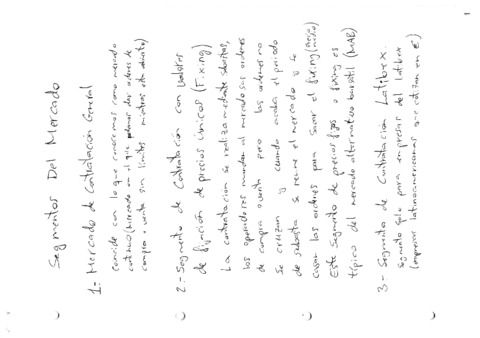 Segmentos Del Mercado
1- Mercado de Contratación General
coincide con lo que conocemos como mercado
continuo (mercado en el que podemos dar ordenes de
compra o venta sin limites mientras este abierto)
2.- Segmento de Contratación con valores
de fijación de precios únicos (Fixing)
La contratación se realiza mediante subastas,
los operadores mandan al mercado sus ordenes
de compra o venta pero las ordenes no
se cruzan y cuando acaba el periodo
de subasta se reune el mercado y se
casan las ordenes para sacar el fixing (precio)
Este Segmento de precios fijos o fixing es
típico del mercado alternativo bursátil (MAB)
3- Segmento de Contratación Latibex.
segmento solo para empresas del latibex
(empresas latinoamericanas que cotizan en €)
1